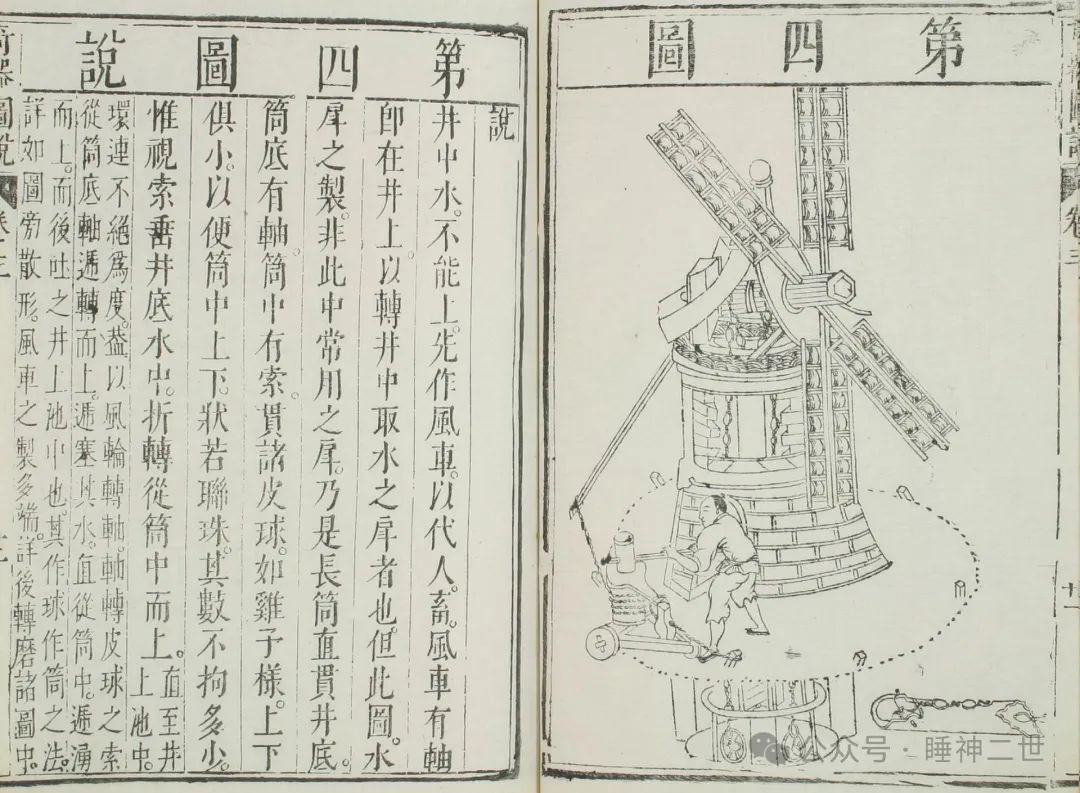 第四圖
卷三
廿一
第四圖說
說
井中水。不能上。先作風車。以代人。畜。風車有軸
卽在井上。以轉井中取水之戽者也。但此圖。水
戽之製。非此中常用之戽。乃是長筒直貫井底。
筒底有軸。筒中有索。貫諸皮球。如雞子樣。上下
俱小。以便筒中上下。狀若聯珠。其數不拘多少。
惟視索垂井底水中。折轉從筒中而上。直至井
上池中
環連不絕爲度。葢以風輪轉軸。軸轉皮球之索
從筒底軸遞轉而上。遞塞其水。直從筒中。遞湧
而上。而後吐之井上池中也。其作球作筒之法。
詳如圖旁散形。風車之製多端。詳後轉磨諸圖中。
器圖說
卷三
公众号·睡神二世